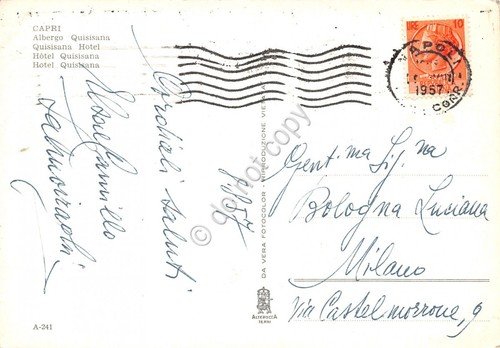 CAPRI
Albergo Quisisana
Quisisana Hotel
Hôtel Quisisana
Hotel Quisisana
LIRE 10
NAPOLI
1957
CORR.
Cordiali saluti
Camillo
8/8/57
do not copy
DA VERA FOTOCOLOR - RIPRODUZIONE VIETATA
Gent.ma Sig.na
Bologna Luciana
Milano
Via Castelmorrone, 9
ALTEROCCA
TERNI
A-241